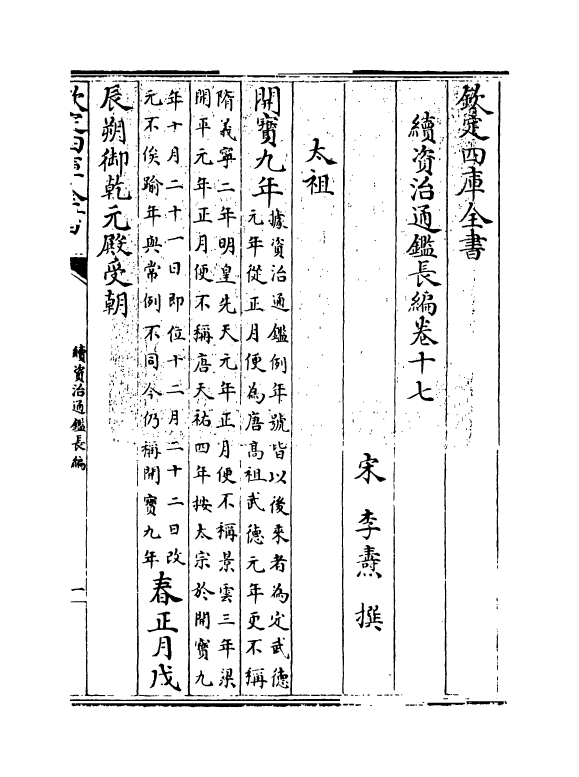 欽定四庫全書
續資治通鑑長編卷十七
宋 李燾 撰
太祖
開寶九年
據資治通鑑例年號皆以後來者為定武德
元年從正月便為唐高祖武德元年更不稱
隋義寧二年明皇先天元年正月便不稱景雲三年梁
開平元年正月便不稱唐天祐四年按太宗於開寶九
年十月二十一日即位十二月二十二日改
元不俟踰年與常例不同今仍稱開寶九年
春正月戊
辰朔御乾元殿受朝
續資治通鑑長編